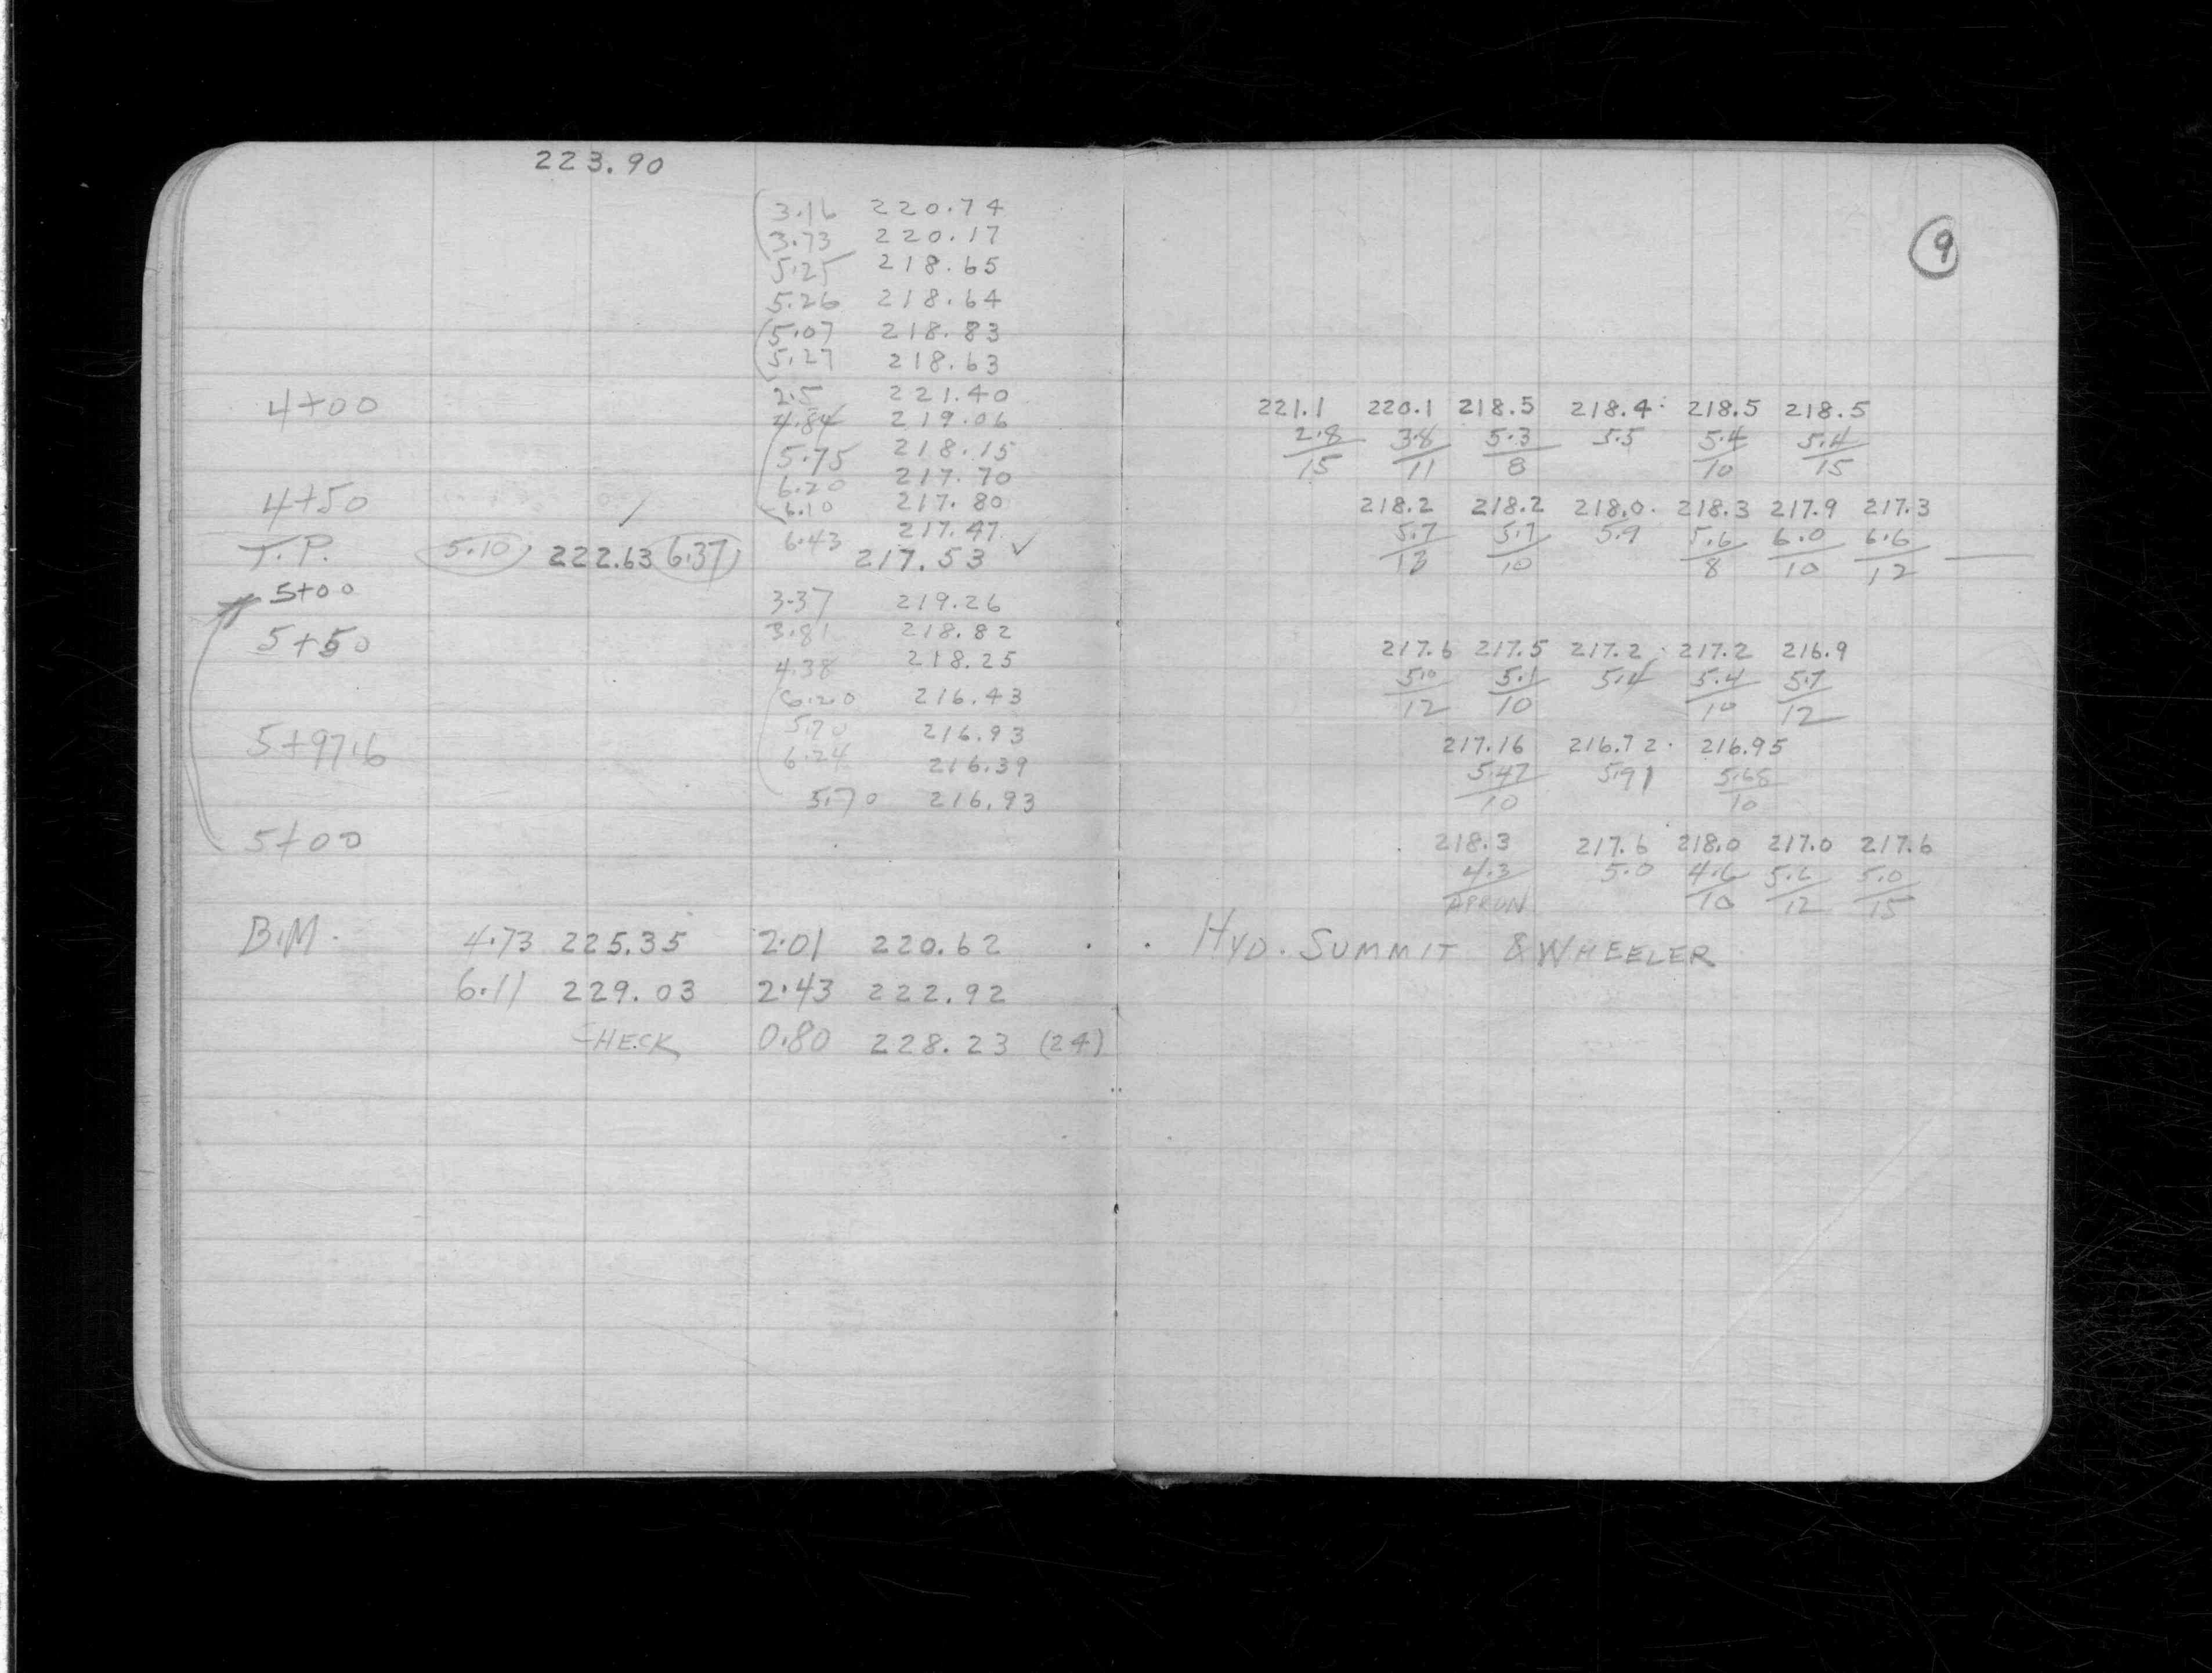 223.90
3.16 220.74
3.73 220.17
5.25 218.65
5.26 218.64
5.07 218.83
5.27 218.63
4+00 2.5 221.40
4.84 219.06
5.75 218.15
6.20 217.70
4+50 6.10 217.80
6.43 217.47
T.P. 5.10 222.63 6.37 217.53 ✓
5+00 3.37 219.26
5+50 3.81 218.82
4.38 218.25
6.20 216.43
5+97.6 5.70 216.93
6.24 216.39
5.70 216.93
5+00
B.M. 4.73 225.35 2.01 220.62
6.11 229.03 2.43 222.92
CHECK 0.80 228.23 (24)
9
221.1 220.1 218.5 218.4 218.5 218.5
2.8 3.8 5.3 5.5 5.4 5.4
15 11 8 10 15
218.2 218.2 218.0 218.3 217.9 217.3
5.7 5.7 5.9 5.6 6.0 6.6
10 8 10 12
217.6 217.5 217.2 217.2 216.9
5.0 5.1 5.4 5.4 5.7
12 10 10 12
217.16 216.72 216.95
5.47 5.91 5.68
10 10
218.3 217.6 218.0 217.0 217.6
4.3 5.0 4.6 5.6 5.0
APRON 10 12 15
HYD. SUMMIT & WHEELER